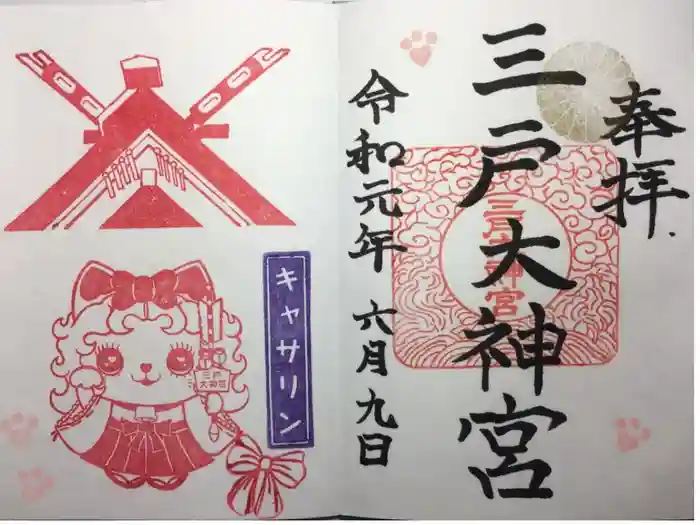 奉拝
三戸大神宮
三戸大神宮
令和元年 六月九日
キャサリン
三戸
大神宮